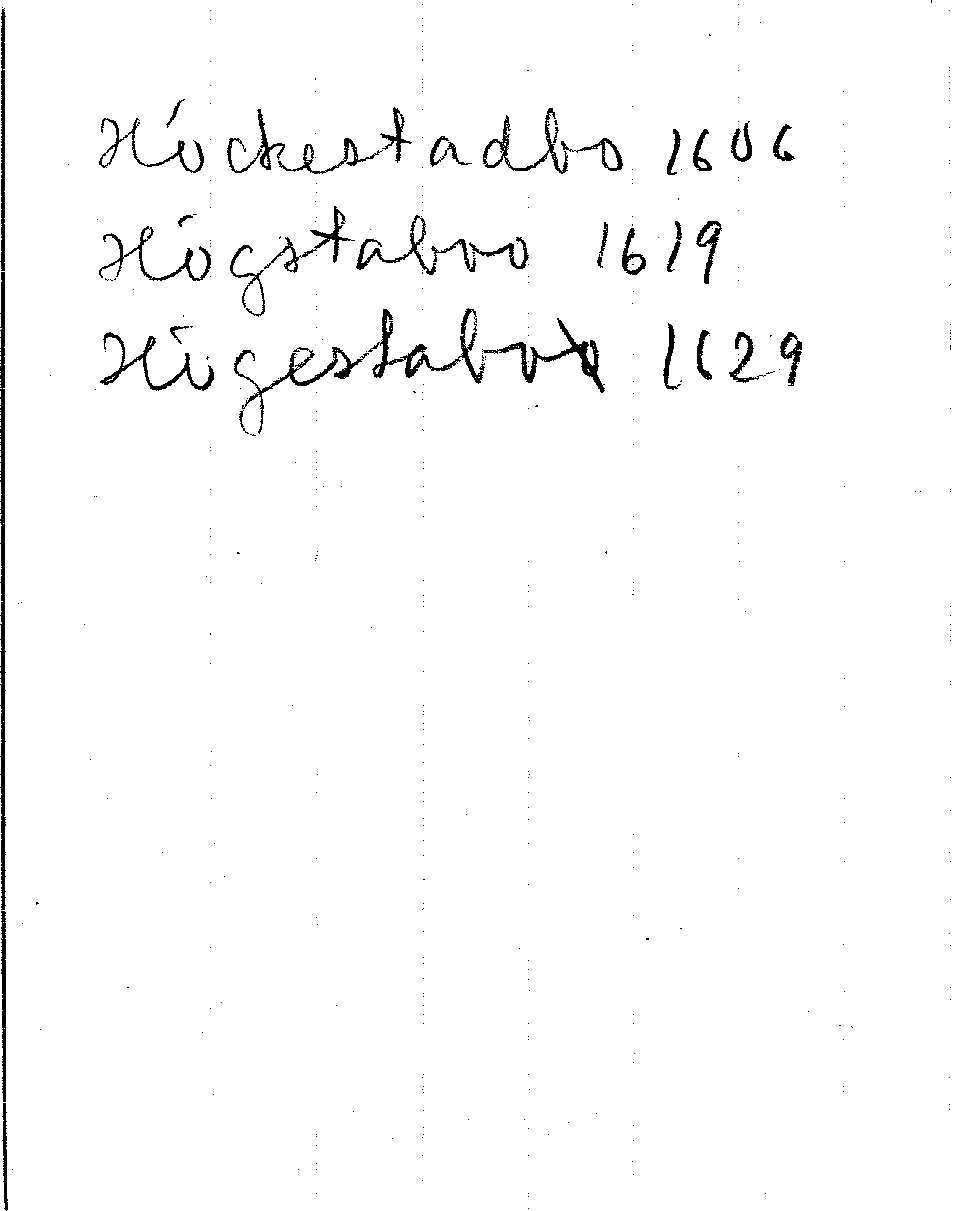 Höckestadbo 1606
Högstaboo 1619
Högestaboo 1629